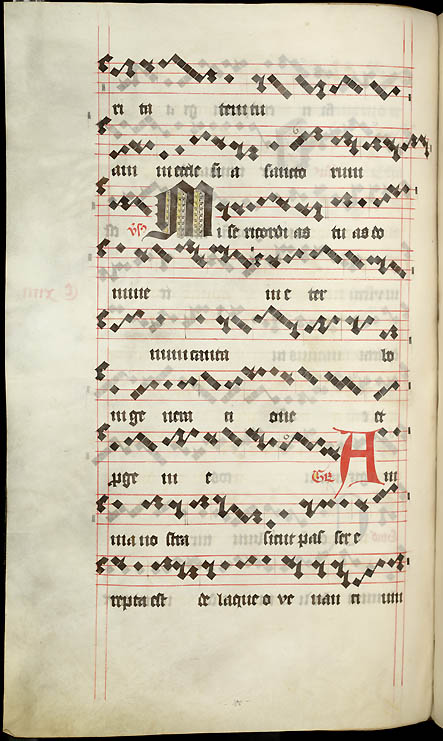 ri ta tem tu
am in eccle si a sancto rum
V Mi se ricordi as tu as do
mine in e ter
num canta bo
in ge nera ti one et
pge ni e Gr An
ima no stra sicut pas ser e
repta est de laqueo ve nan ti um